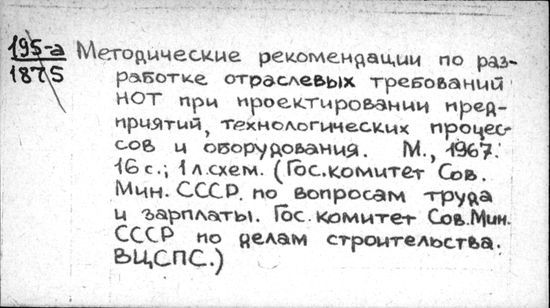 195-а
1875
Методические рекомендации по раз-
работке отраслевых требований
НОТ при проектировании пред-
приятий, технологических процес-
сов и оборудования. М., 1967.
16 с.; 1 л. схем. (Гос. комитет Сов.
Мин. СССР по вопросам труда
и зарплаты. Гос. комитет Сов. Мин.
СССР по делам строительства.
ВЦСПС.)